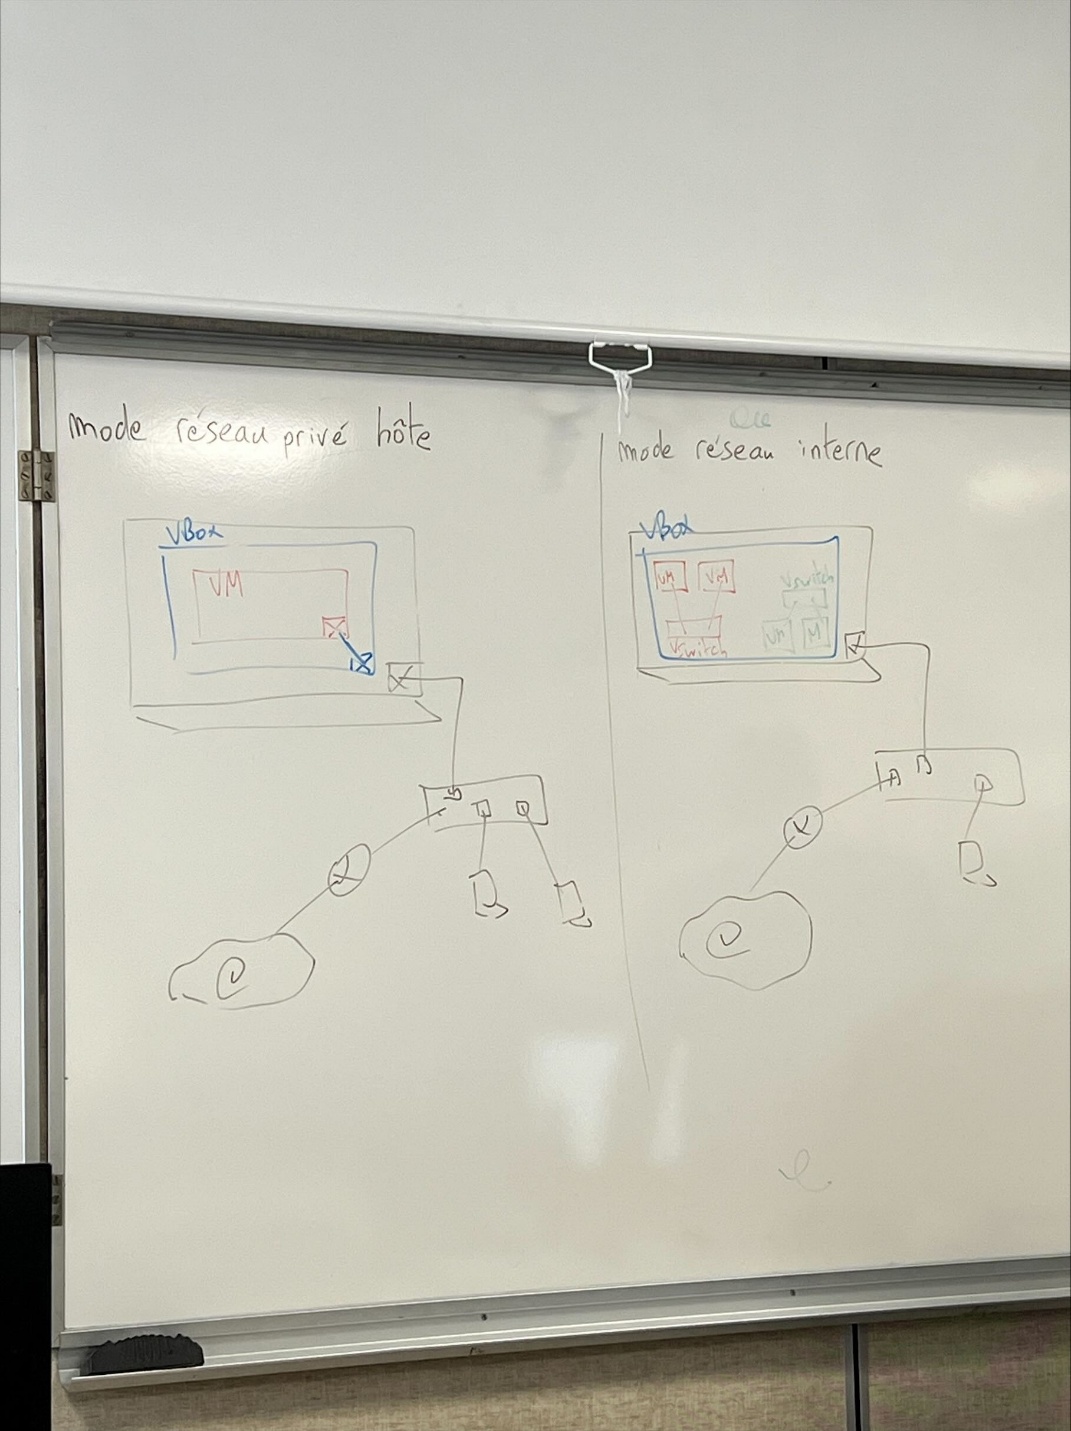 mode réseau privé hôte
VBox
VM
mode réseau interne
VBox
VM VM
Vswitch
Vswitch
VM M